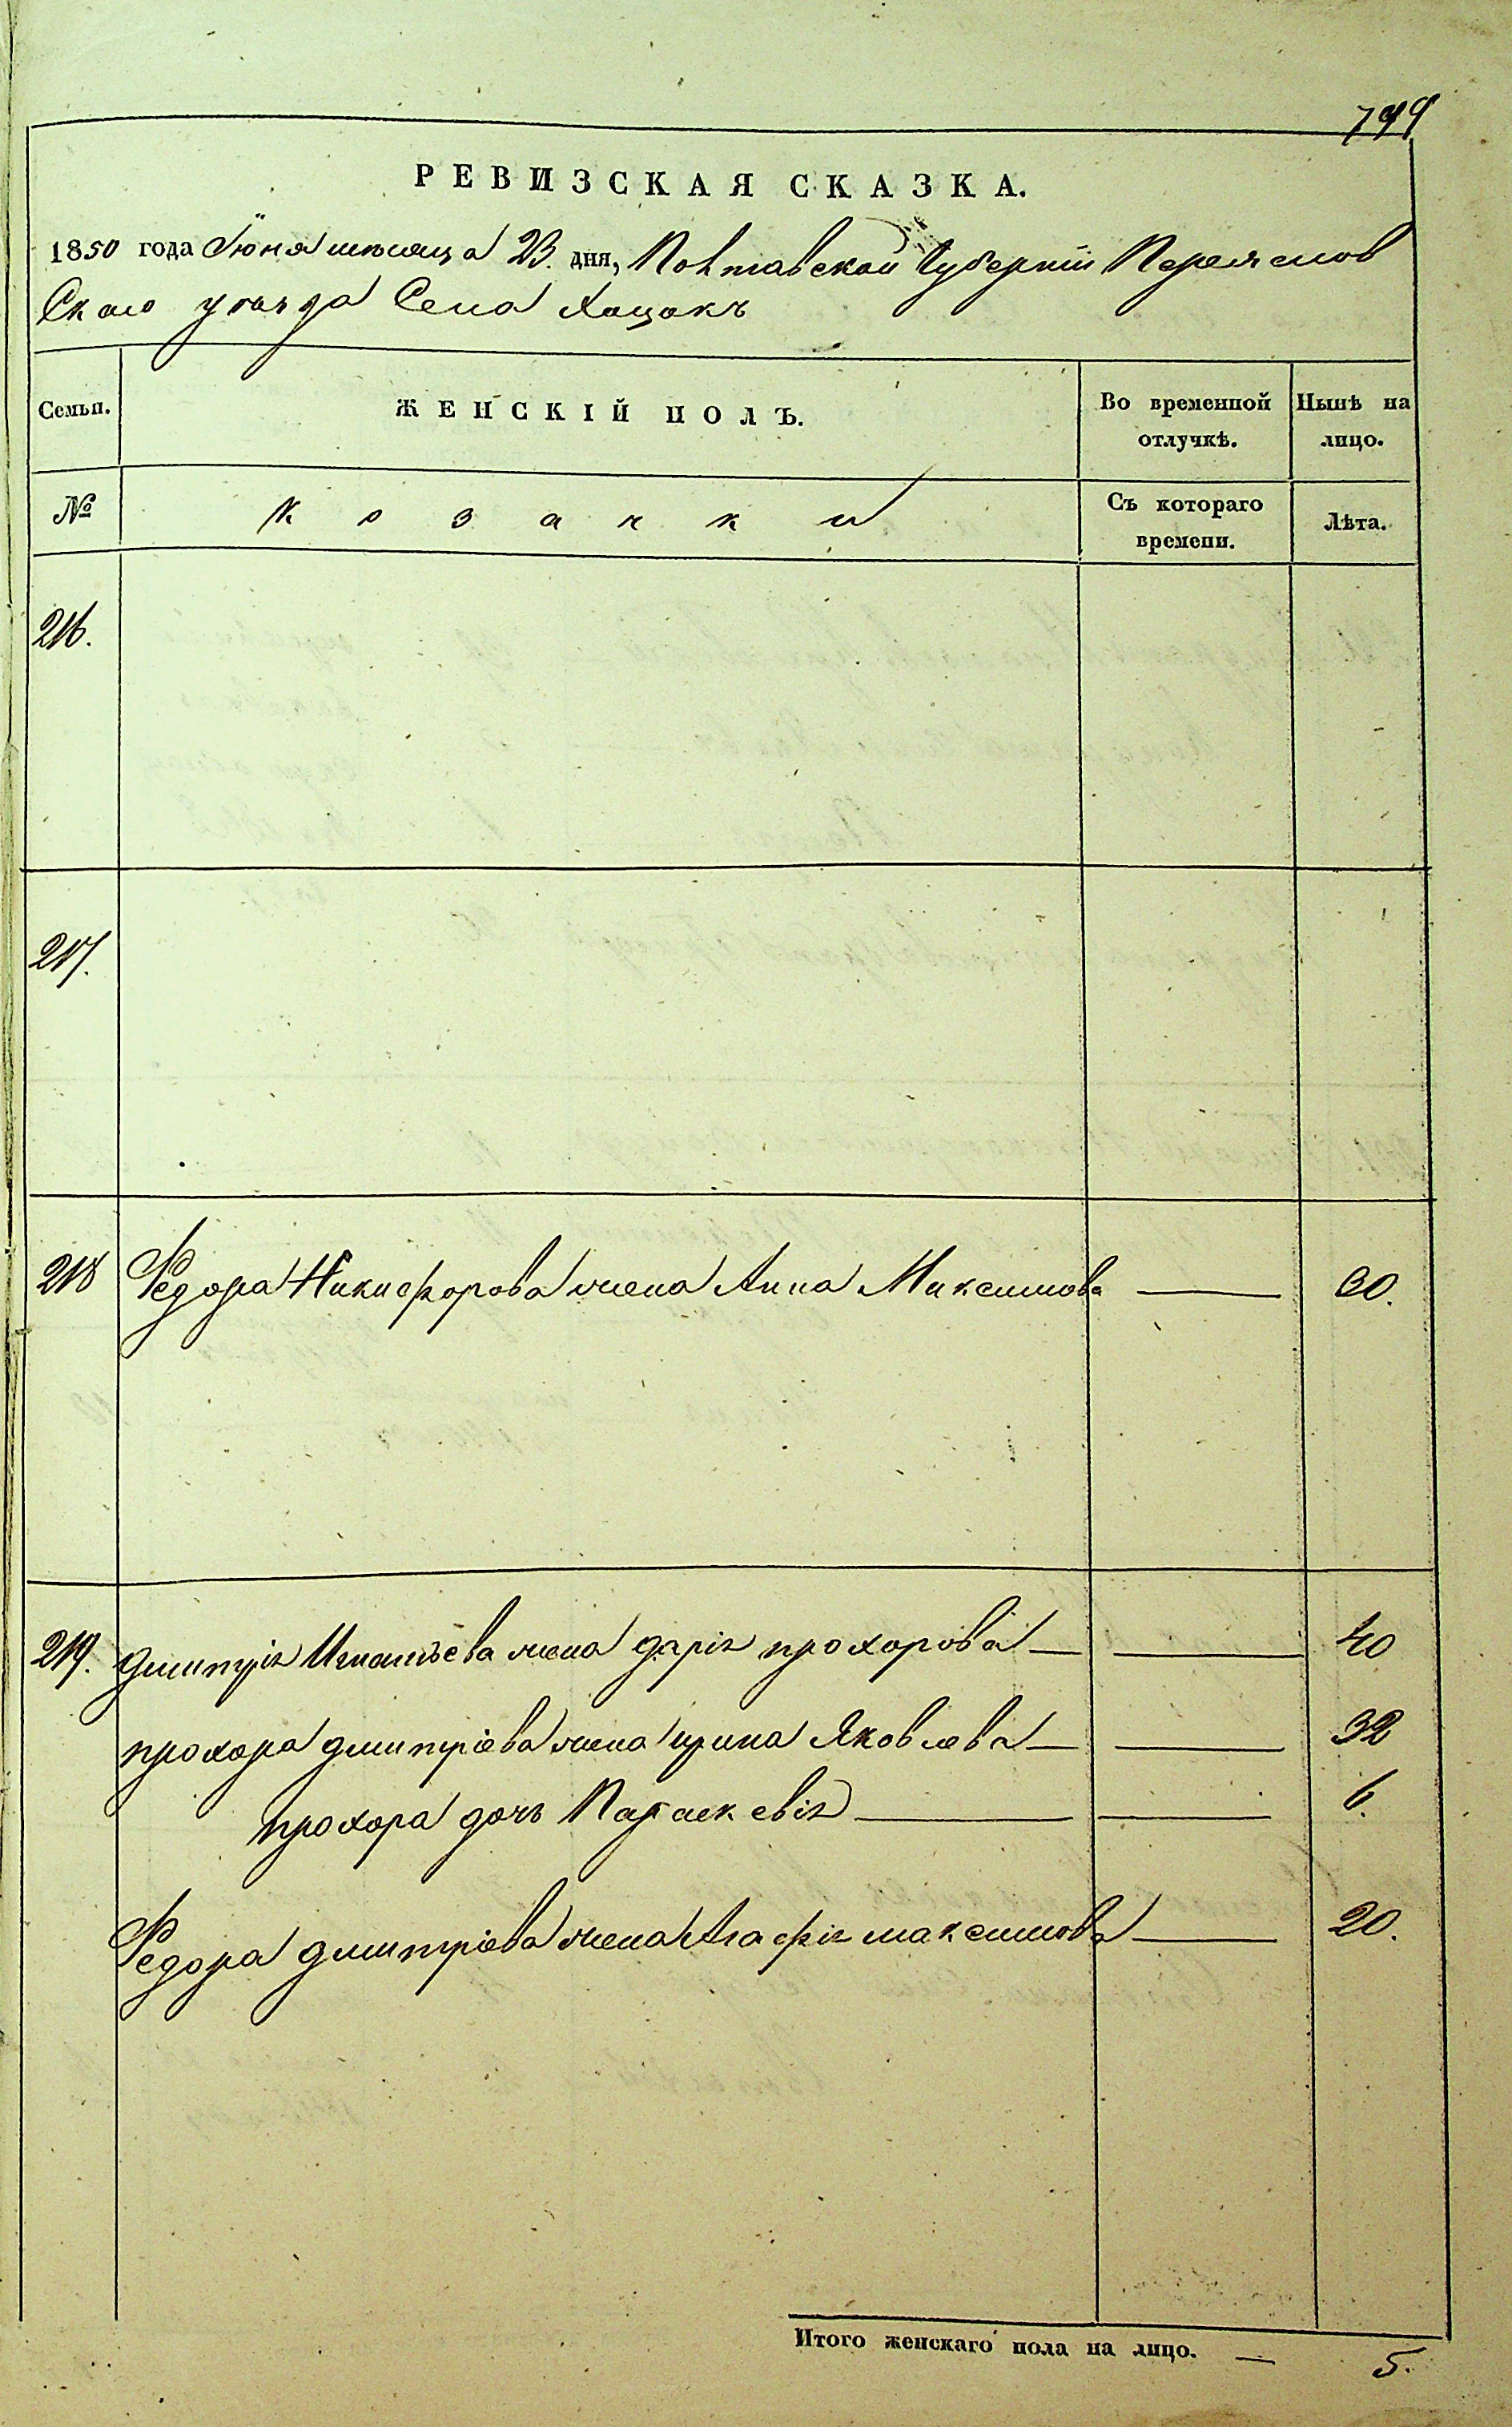 799
РЕВИЗСКАЯ СКАЗКА.
1850 года Іюня мѣсяца 23. дня, Полтавской Губерніи Переяслов
Скаго уѣзда Села Хоцокъ
Семьи. ЖЕНСКІЙ ПОЛЪ. Во временной отлучкѣ. Нынѣ на лицо.
№ Козачки Съ котораго времени. Лѣта.
216.
217.
218 Федора Никифорова жена Анна Максимова — 30.
219. Дмитрія Игнатьева жена дарія прохорова — — 40
прохора дмитріева жена ирина Яковлева — — 32
прохора дочь Параскевія — — 6.
Федора дмитріева жена Агафія максимова — 20.
Итого женскаго пола на лицо. — 5.